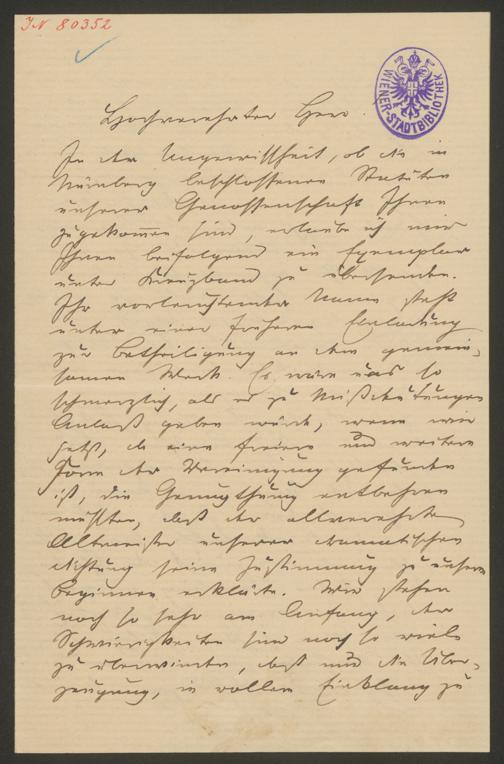 IN 80352
WIENER-STADTBIBLIOTHEK
Hochverehrter Herr.
In der Ungewissheit, ob die in
Nürnberg beschlossenen Statuten
unserer Genossenschaft Ihnen
zugekommen sind, erlaube ich mir
Ihnen beifolgend ein Exemplar
unter Kreuzband zu übersenden.
Ihr vorleuchtender Name steht
unter einer früheren Einladung
zur Betheiligung an dem gemein-
samen Werk. Es wäre uns so
schmerzlich, als es zu Mißdeutungen
Anlaß geben würde, wenn wir
jetzt, da eine freiere und weitere
Form der Vereinigung gefunden
ist, die Genugthuung entbehren
müßten, daß der allverehrte
Altmeister unserer dramatischen
Dichtung seine Zustimmung zu unserm
Beginnen erklärte. Wir stehen
noch so sehr am Anfang, der
Schwierigkeiten sind noch so viele
zu überwinden, daß nur die Über-
zeugung, in vollem Einklang zu